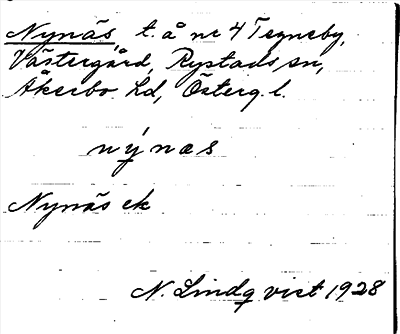 Nynäs, t. å nr 4 Tegneby,
Västergård, Rystads sn,
Åkerbo hd, Österg. l.
nýnas
Nynäs ek
N. Lindqvist 1928